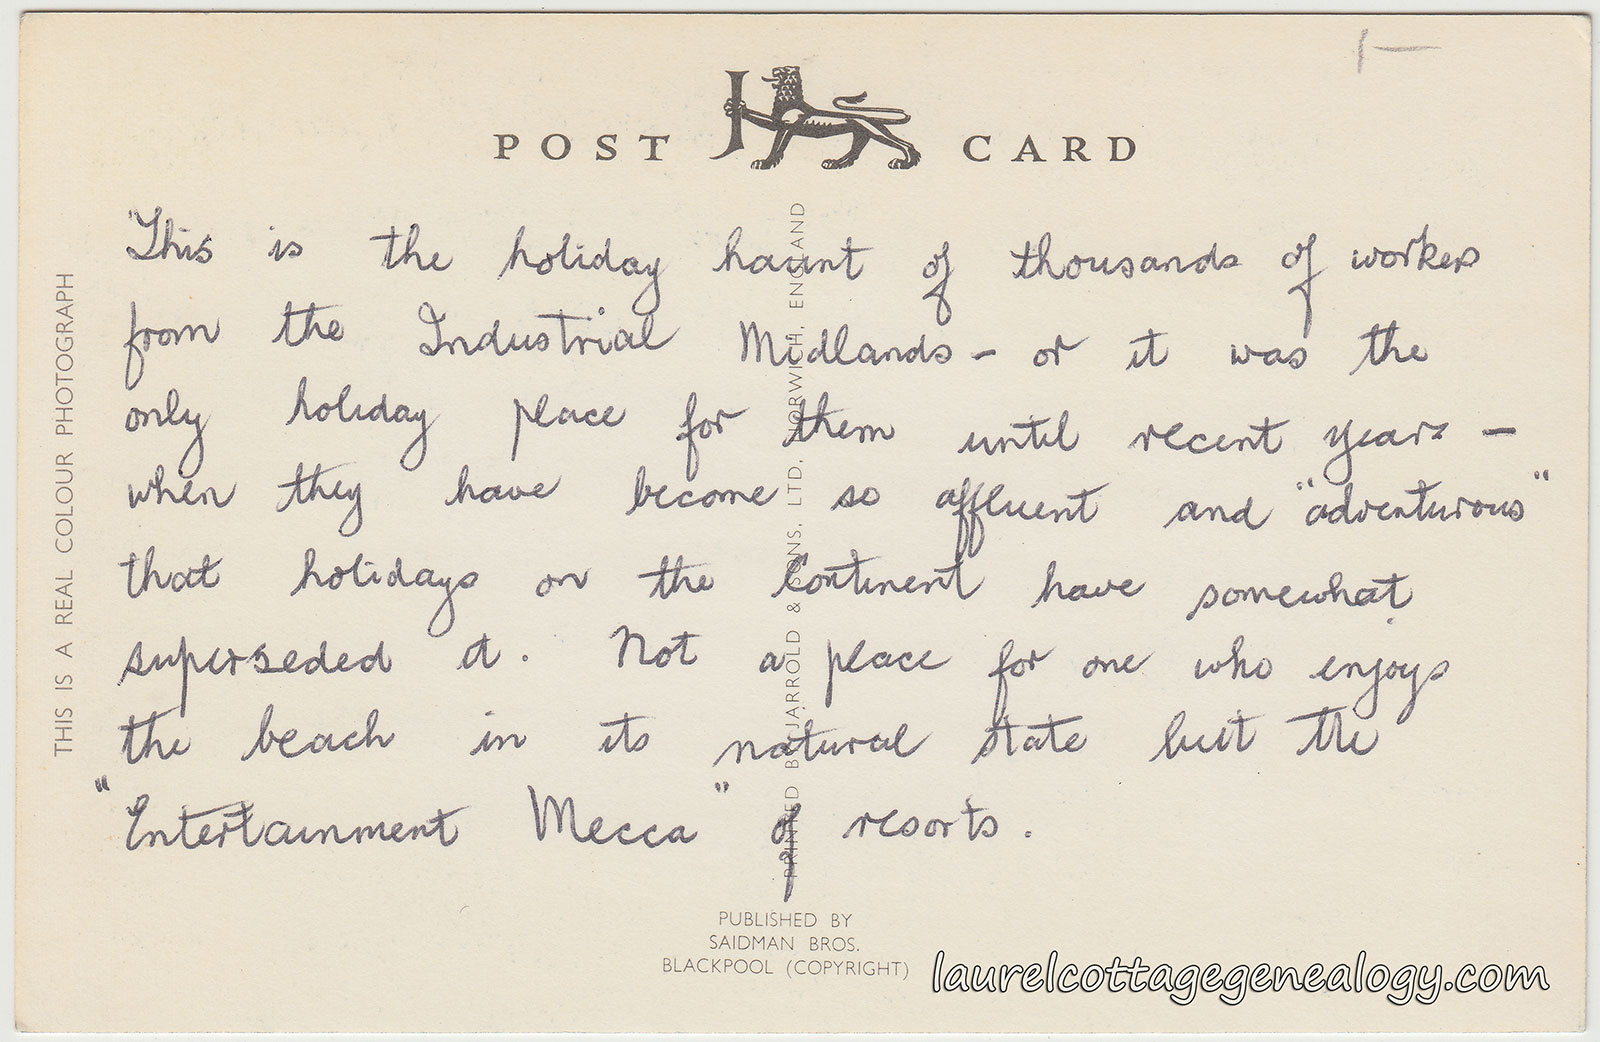 1—
POST CARD
"This is the holiday haunt of thousands of workers
from the Industrial Midlands - or it was the
only holiday place for them until recent years -
when they have become so affluent and "adventurous"
that holidays on the Continent have somewhat
superseded it. Not a place for one who enjoys
the beach in its natural state but the
"Entertainment Mecca" of resorts.
THIS IS A REAL COLOUR PHOTOGRAPH
PRINTED BY JARROLD & SONS, LTD. NORWICH, ENGLAND
PUBLISHED BY
SAIDMAN BROS.
BLACKPOOL (COPYRIGHT)
laurelcottagegenealogy.com